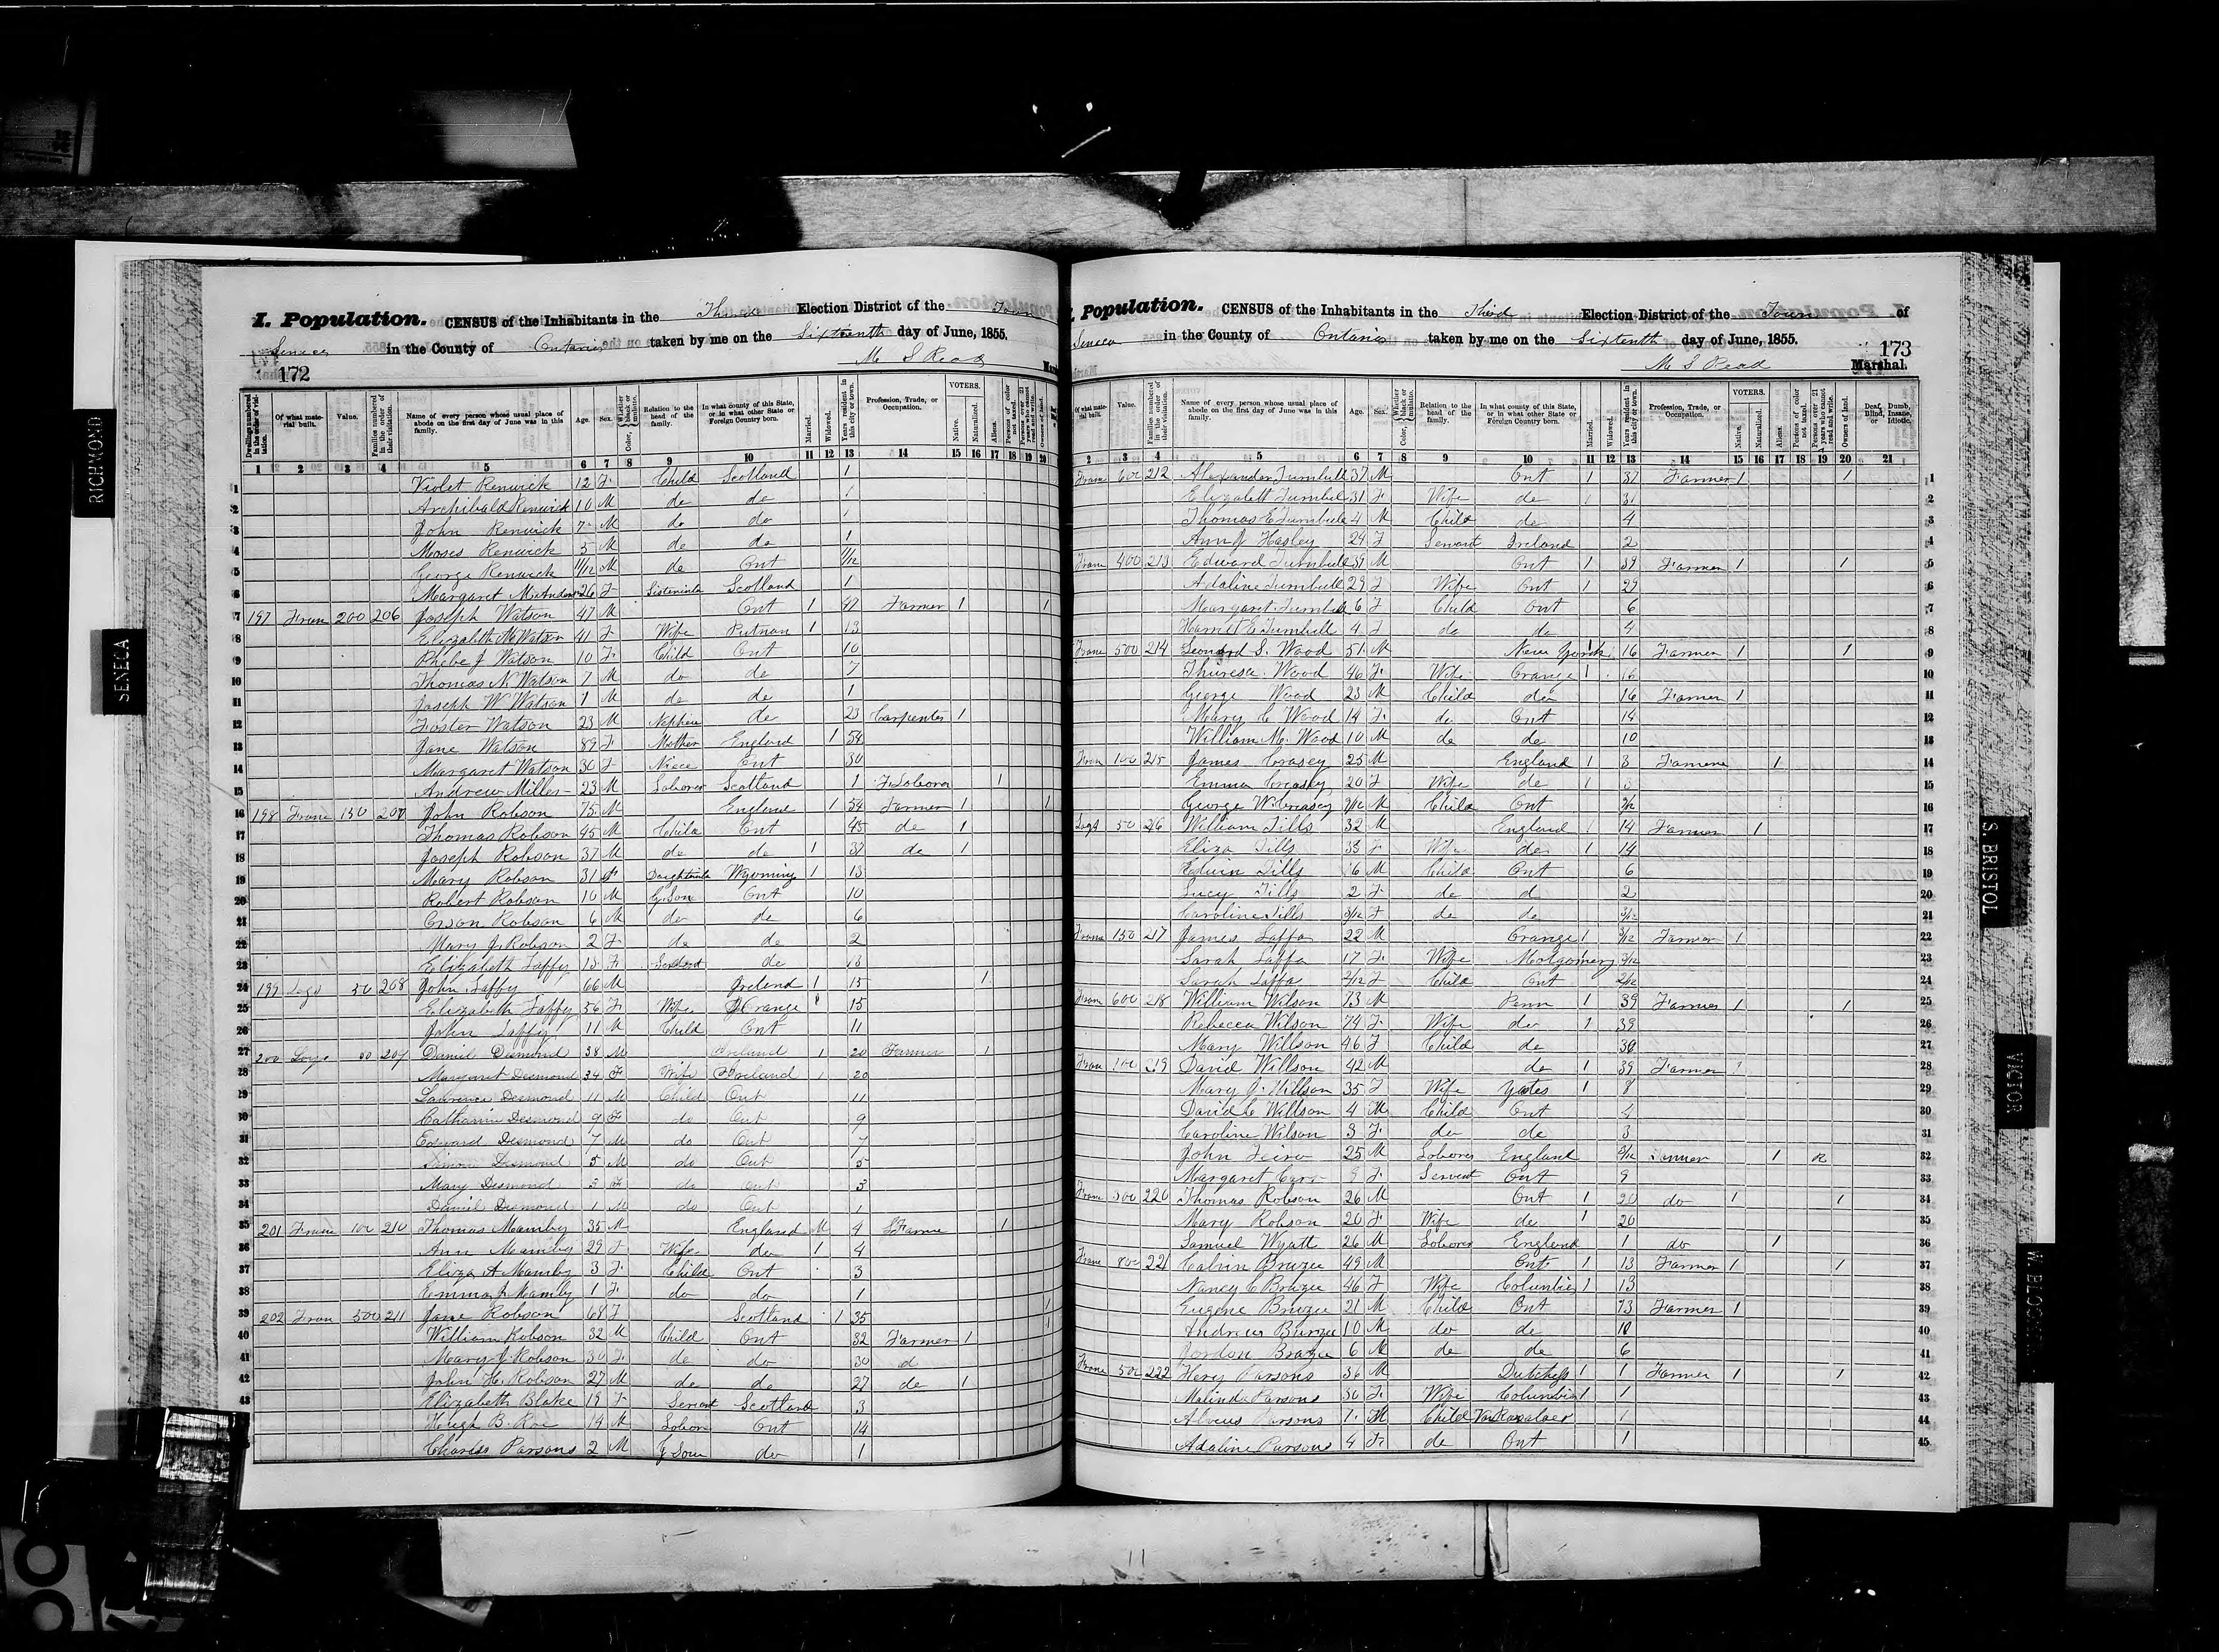 RICHMOND
SENECA
S. BRISTOL
VICTOR
I. Population. CENSUS of the Inhabitants in the Third Election District of the Town
Seneca in the County of Ontario taken by me on the Sixteenth day of June, 1855.
172 M S Read
Dwellings numbered in the order of visitation. Of what material built. Value. Families numbered in the order of their visitation. Name of every person whose usual place of abode on the first day of June was in this family. Age. Sex. Color, Whether black or mulatto. Relation to the head of the family. In what county of this State, or in what other State or Foreign Country born. Married. Widowed. Years resident in this city or town. Profession, Trade, or Occupation. VOTERS. Native. Naturalized. Aliens. Persons of color not taxed. Persons over 21 years who cannot read and write. Owners of land.
1 2 3 4 5 6 7 8 9 10 11 12 13 14 15 16 17 18 19 20
1 Violet Renwick 12 F Child Scotland 1
2 Archibald Renwick 10 M do do 1
3 John Renwick 7 M do do 1
4 Moses Renwick 5 M do do 1
5 George Renwick 11/12 M do Ont 11/12
6 Margaret 26 F Scotland 1
7 197 Fram 200 206 Joseph Watson 47 M Ont 1 47 Farmer 1 1
8 Elizabeth M Watson 41 F Wife Putnam 1 13
9 Phebe J Watson 10 F Child Ont 10
10 Thomas N Watson 7 M do do 7
11 Joseph W Watson 1 M do do 1
12 Foster Watson 23 M Nephew do 23 Carpenter 1
13 Jane Watson 89 F Mother England 1 54
14 Margaret Watson 30 F Niece Ont 30
15 Andrew Miller 23 M Laborer Scotland 1 F Laborer 1
16 198 Frame 150 207 John Robson 75 M England 1 54 Farmer 1 1
17 Thomas Robson 45 M Child Ont 45 do 1
18 Joseph Robson 37 M do do 1 37 do 1
19 Mary Robson 31 F Wyoming 1 13
20 Robert Robson 10 M G Son Ont 10
21 Orson Robson 6 M do do 6
22 Mary J Robson 2 F do do 2
23 Elizabeth Laffy 13 F do 13
24 199 Logs 50 208 John Laffy 66 M Ireland 1 15 1
25 Elizabeth Laffy 56 F Wife Orange 1 15
26 John Laffy 11 M Child Ont 11
27 200 Logs 50 209 Daniel Desmond 38 M Ireland 1 20 Farmer 1
28 Margaret Desmond 34 F Wife Ireland 1 20
29 Lawrence Desmond 11 M Child Ont 11
30 Catharine Desmond 9 F do Ont 9
31 Edward Desmond 7 M do Ont 7
32 Desmond 5 M do Ont 5
33 Mary Desmond 3 F do Ont 3
34 Daniel Desmond 1 M do Ont 1
35 201 Frame 100 210 Thomas Mamby 35 M England M 4 Farme 1
36 Ann Mamby 29 F Wife do 1 4
37 Eliza A Mamby 3 F Child Ont 3
38 Emma Mamby 1 F do do 1
39 202 Fram 500 211 Jane Robson 68 F Scotland 1 35 1
40 William Robson 32 M Child Ont 32 Farmer 1
41 Mary J Robson 30 F do do 30 d
42 John H. Robson 27 M do do 27 do 1
43 Elizabeth Blake 19 F Servant Scotland 3
Hugh B. Roe 14 M Labor Ont 14
Charles Parsons 2 M G Son do 1
I. Population. CENSUS of the Inhabitants in the Third Election District of the Town of
Seneca in the County of Ontario taken by me on the Sixteenth day of June, 1855.
M S Read Marshal. 173
Of what material built. Value. Families numbered in the order of their visitation. Name of every person whose usual place of abode on the first day of June was in this family. Age. Sex. Color, Whether black or mulatto. Relation to the head of the family. In what county of this State, or in what other State or Foreign Country born. Married. Widowed. Years resident in this city or town. Profession, Trade, or Occupation. VOTERS. Native. Naturalized. Aliens. Persons of color not taxed. Persons over 21 years who cannot read and write. Owners of land. Deaf, Dumb, Blind, Insane, or Idiotic.
2 3 4 5 6 7 8 9 10 11 12 13 14 15 16 17 18 19 20 21
Fram 600 212 Alexander Turnbull 37 M Ont 1 37 Farmer 1 1 1
Elizabeth Turnbull 31 F Wife do 1 31 2
Thomas E Turnbull 4 M Child do 4 3
Ann J Hasley 24 F Servant Ireland 2 4
Fram 400 213 Edward Turnbull 39 M Ont 1 39 Farmer 1 1 5
Adaline Turnbull 29 F Wife Ont 1 29 6
Margaret Turnbull 6 F Child Ont 6 7
Harriet E Turnbull 4 F do do 4 8
Frame 500 214 Leonard S. Wood 51 M New York 16 Farmer 1 1 9
Theresa Wood 46 F Wife Orange 1 16 10
George Wood 23 M Child do 16 Farmer 1 11
Mary C Wood 14 F do Ont 14 12
William M. Wood 10 M do do 10 13
Fram 100 215 James Creasey 25 M England 1 3 Farmer 1 14
Emma Creasey 20 F Wife do 1 3 15
George W Creasey M Child Ont 16
Logs 50 216 William Tills 32 M England 1 14 Farmer 1 17
Eliza Tills 33 F Wife do 1 14 18
Edwin Tills 6 M Child Ont 6 19
Lucy Tills 2 F do d 2 20
Caroline Tills 3/12 F do do 3/12 21
Frame 150 217 James Laffa 22 M Orange 1 3/12 Farmer 1 22
Sarah Laffa 17 F Wife Motgomery 3/12 23
Sarah Laffa 2/12 F Child Ont 2/12 24
Fram 600 218 William Wilson 73 M Penn 1 39 Farmer 1 1 25
Rebecca Wilson 74 F Wife do 1 39 26
Mary Willson 46 F Child do 27
Fram 100 219 David Willson 42 M do 1 39 Farmer 1 28
Mary J. Willson 35 F Wife Yates 1 8 29
David C Willson 4 M Child Ont 4 30
Caroline Wilson 3 F do do 3 31
John 25 M Laborer England 1 32
Margaret 9 F Servent Ont 9 33
Frame 500 220 Thomas Robson 26 M Ont 1 20 do 1 1 34
Mary Robson 20 F Wife do 1 20 35
Samuel Wyatt 26 M Laborer England 1 do 1 36
Frame 800 221 Calvin Bruzee 49 M Ont 1 13 Farmer 1 1 37
Nancy C Bruzee 46 F Wife Columbia 1 13
Eugene Bruzee 21 M Child Ont 13 Farmer 1 39
Andrew Bruzee 10 M do do 10 40
Gordon Bruzee 6 M do do 6 41
Frame 500 222 Hery Parsons 36 M Dutchess 1 1 Farmer 1 1 42
Malinda Parsons 30 F Wife Columbia 1 1 43
Parsons 7 M Child 1 44
Adaline Parsons 4 F do Ont 1 45